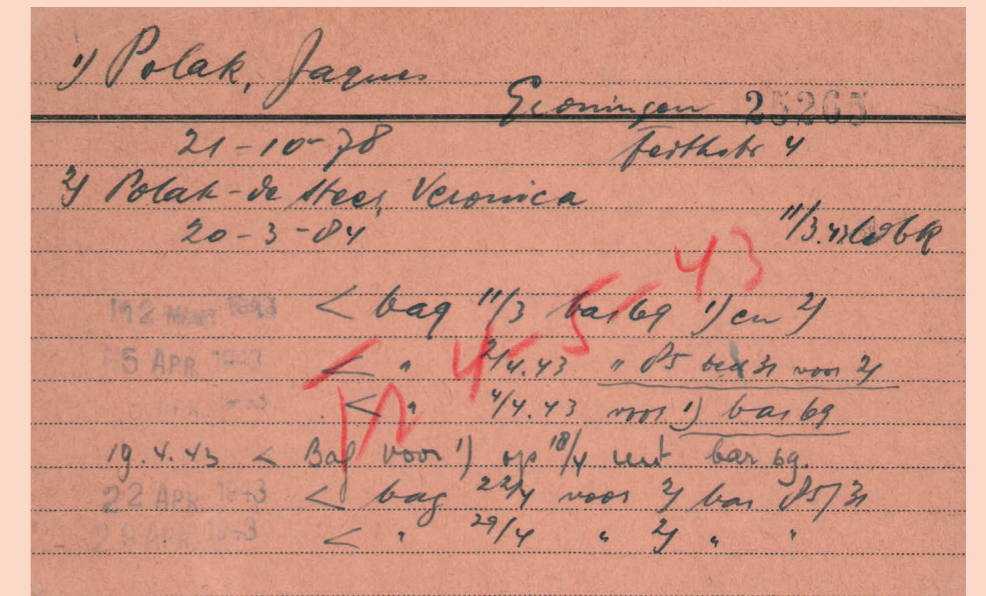 1) Polak, Jaques
Groningen 25265
21-10-78 Feithstr 4
2) Polak-de Heer, Veronica
20-3-84 11/3.43 Wbk
12 1943 < bag 11/3 bar 69 1) en 2)
5 APR 1943 < " 2/4.43 " 85 bed 31 voor 2)
< " 4/4.43 voor 1) bar 69
19.4.43 < Bag voor 1) op 18/4 uit bar 69.
22 APR 1943 < bag 22/4 voor 2) bar 85/31
29 APR 1943 < " 29/4 " 2) " "
4-5-43